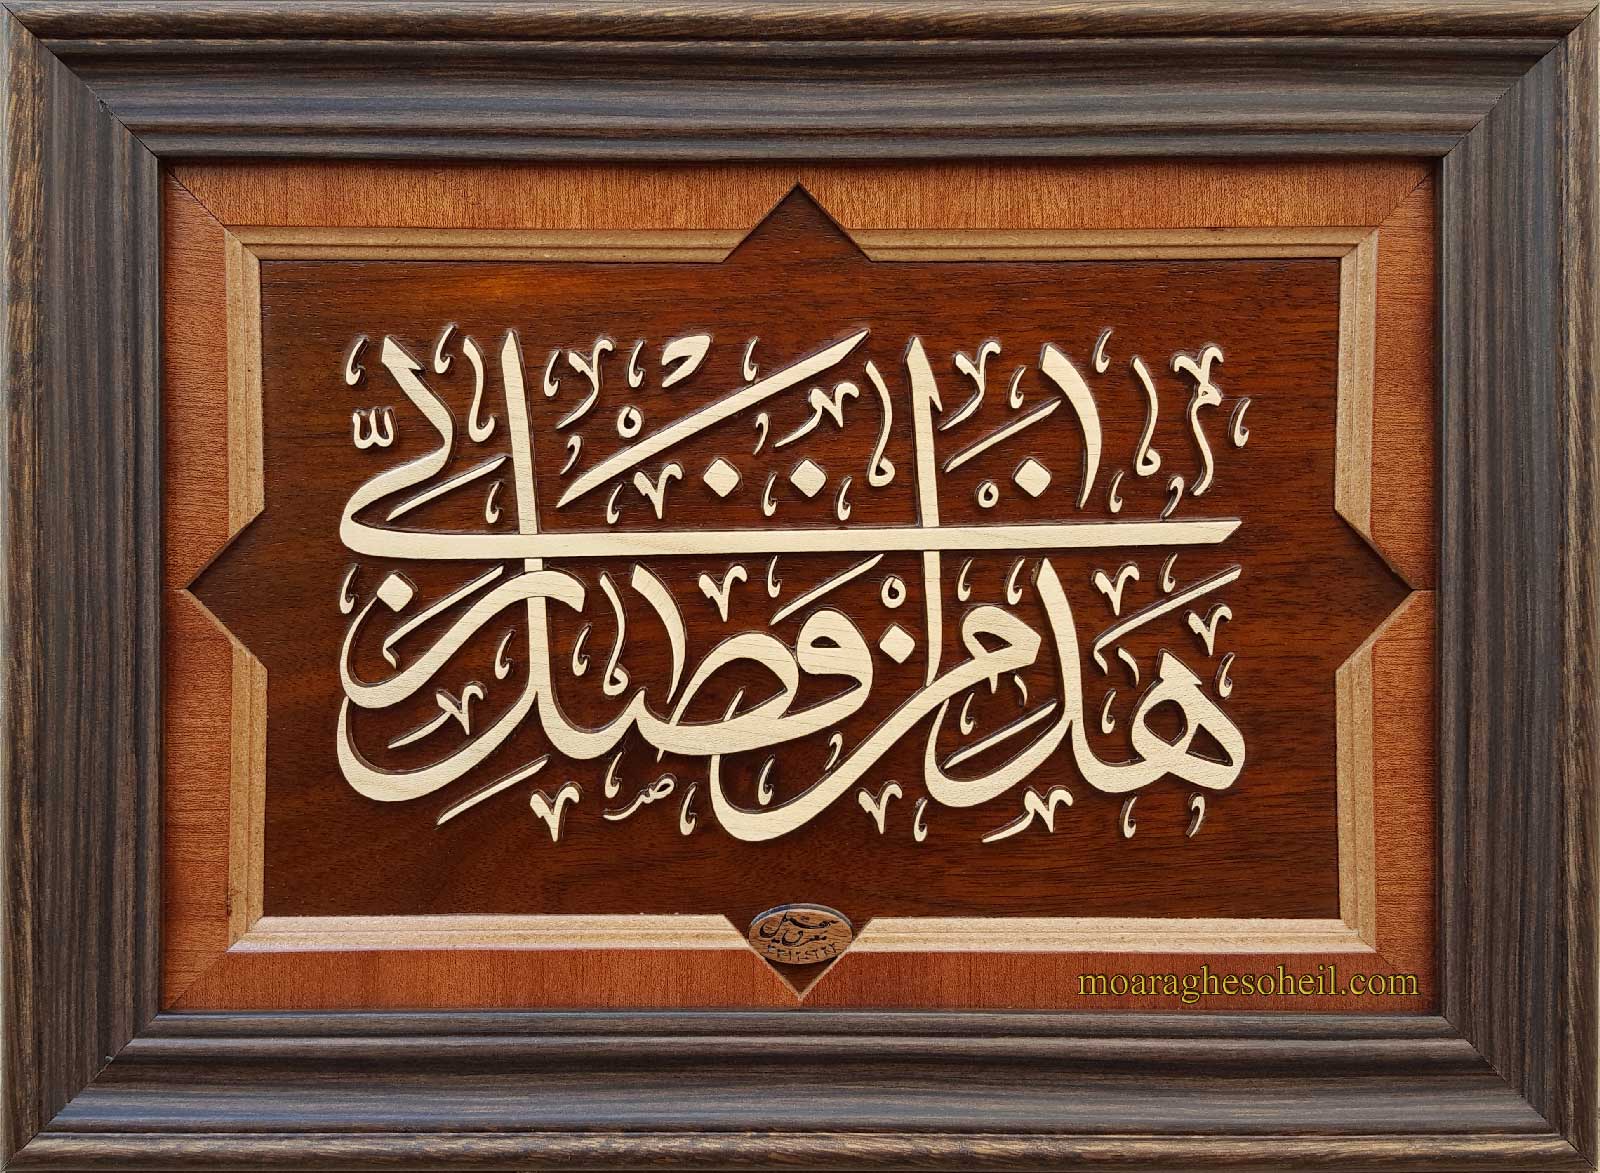 هذا من فضل ربی
معرق سهیل
moaraghesoheil.com